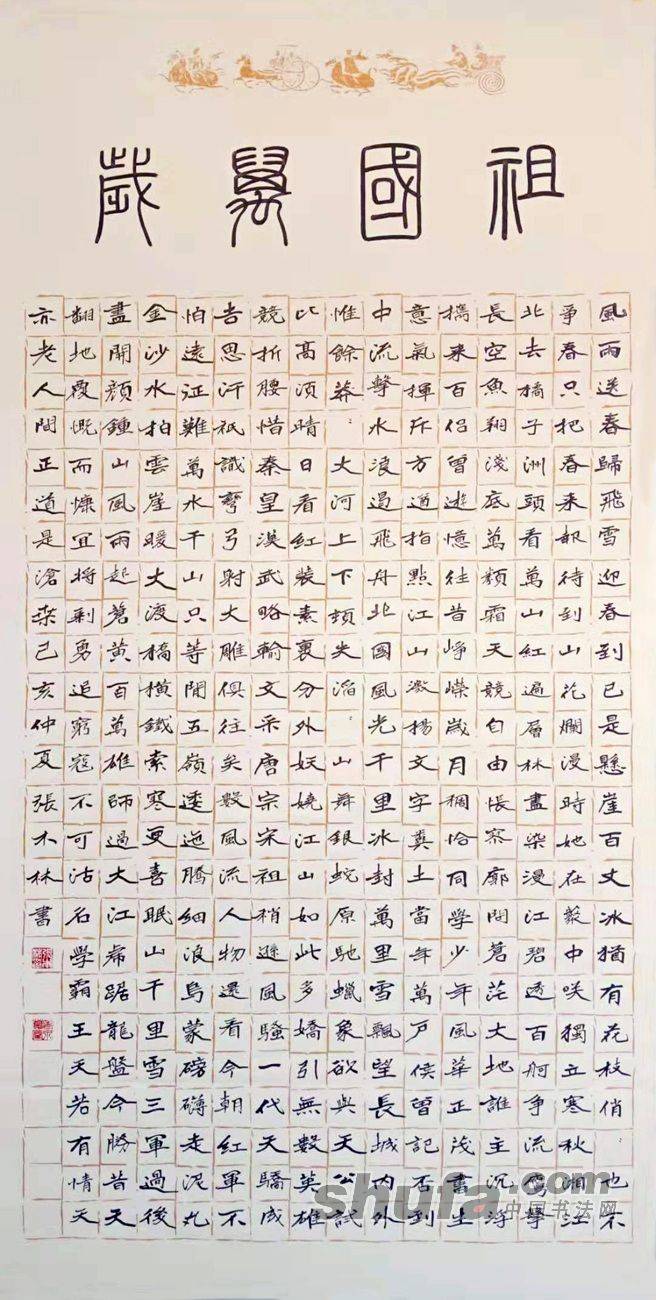 祖國萬歲
風雨送春歸飛雪迎春到已是懸崖百丈冰猶有花枝俏 也不
爭春只把春來報待到山花爛漫時她在叢中咲獨立寒秋湘江
北去橘子洲頭看萬山紅遍層林盡染漫江碧透百舸爭流鷹擊
長空魚翔淺底萬類霜天競自由悵寥廓問蒼茫大地誰主沉浮
攜來百侶曾遊憶往昔崢嶸歲月稠恰同學少年風華正茂書生
意氣揮斥方遒指點江山激揚文字糞土當年萬戶侯曾記否到
中流擊水浪遏飛舟北國風光千里冰封萬里雪飄望長城內外
惟餘莽 大河上下頓失滔 山舞銀蛇原馳蠟象欲與天公試
比高須晴日看紅裝素裹分外妖嬈江山如此多嬌引無數英雄
競折腰惜秦皇漢武略輸文采唐宗宋祖稍遜風騷一代天驕成
吉思汗祇識彎弓射大雕俱往矣數風流人物還看今朝紅軍不
怕遠征難萬水千山只等閒五嶺逶迤騰細浪烏蒙磅礴走泥丸
金沙水拍雲崖暖大渡橋橫鐵索寒更喜岷山千里雪三軍過後
盡開顏鍾山風雨起蒼黃百萬雄師過大江虎踞龍盤今勝昔天
翻地覆慨而慷宜將剩勇追窮寇不可沽名學霸王天若有情天
亦老人間正道是滄桑己亥仲夏張木林書
shufa.com
中国书法网